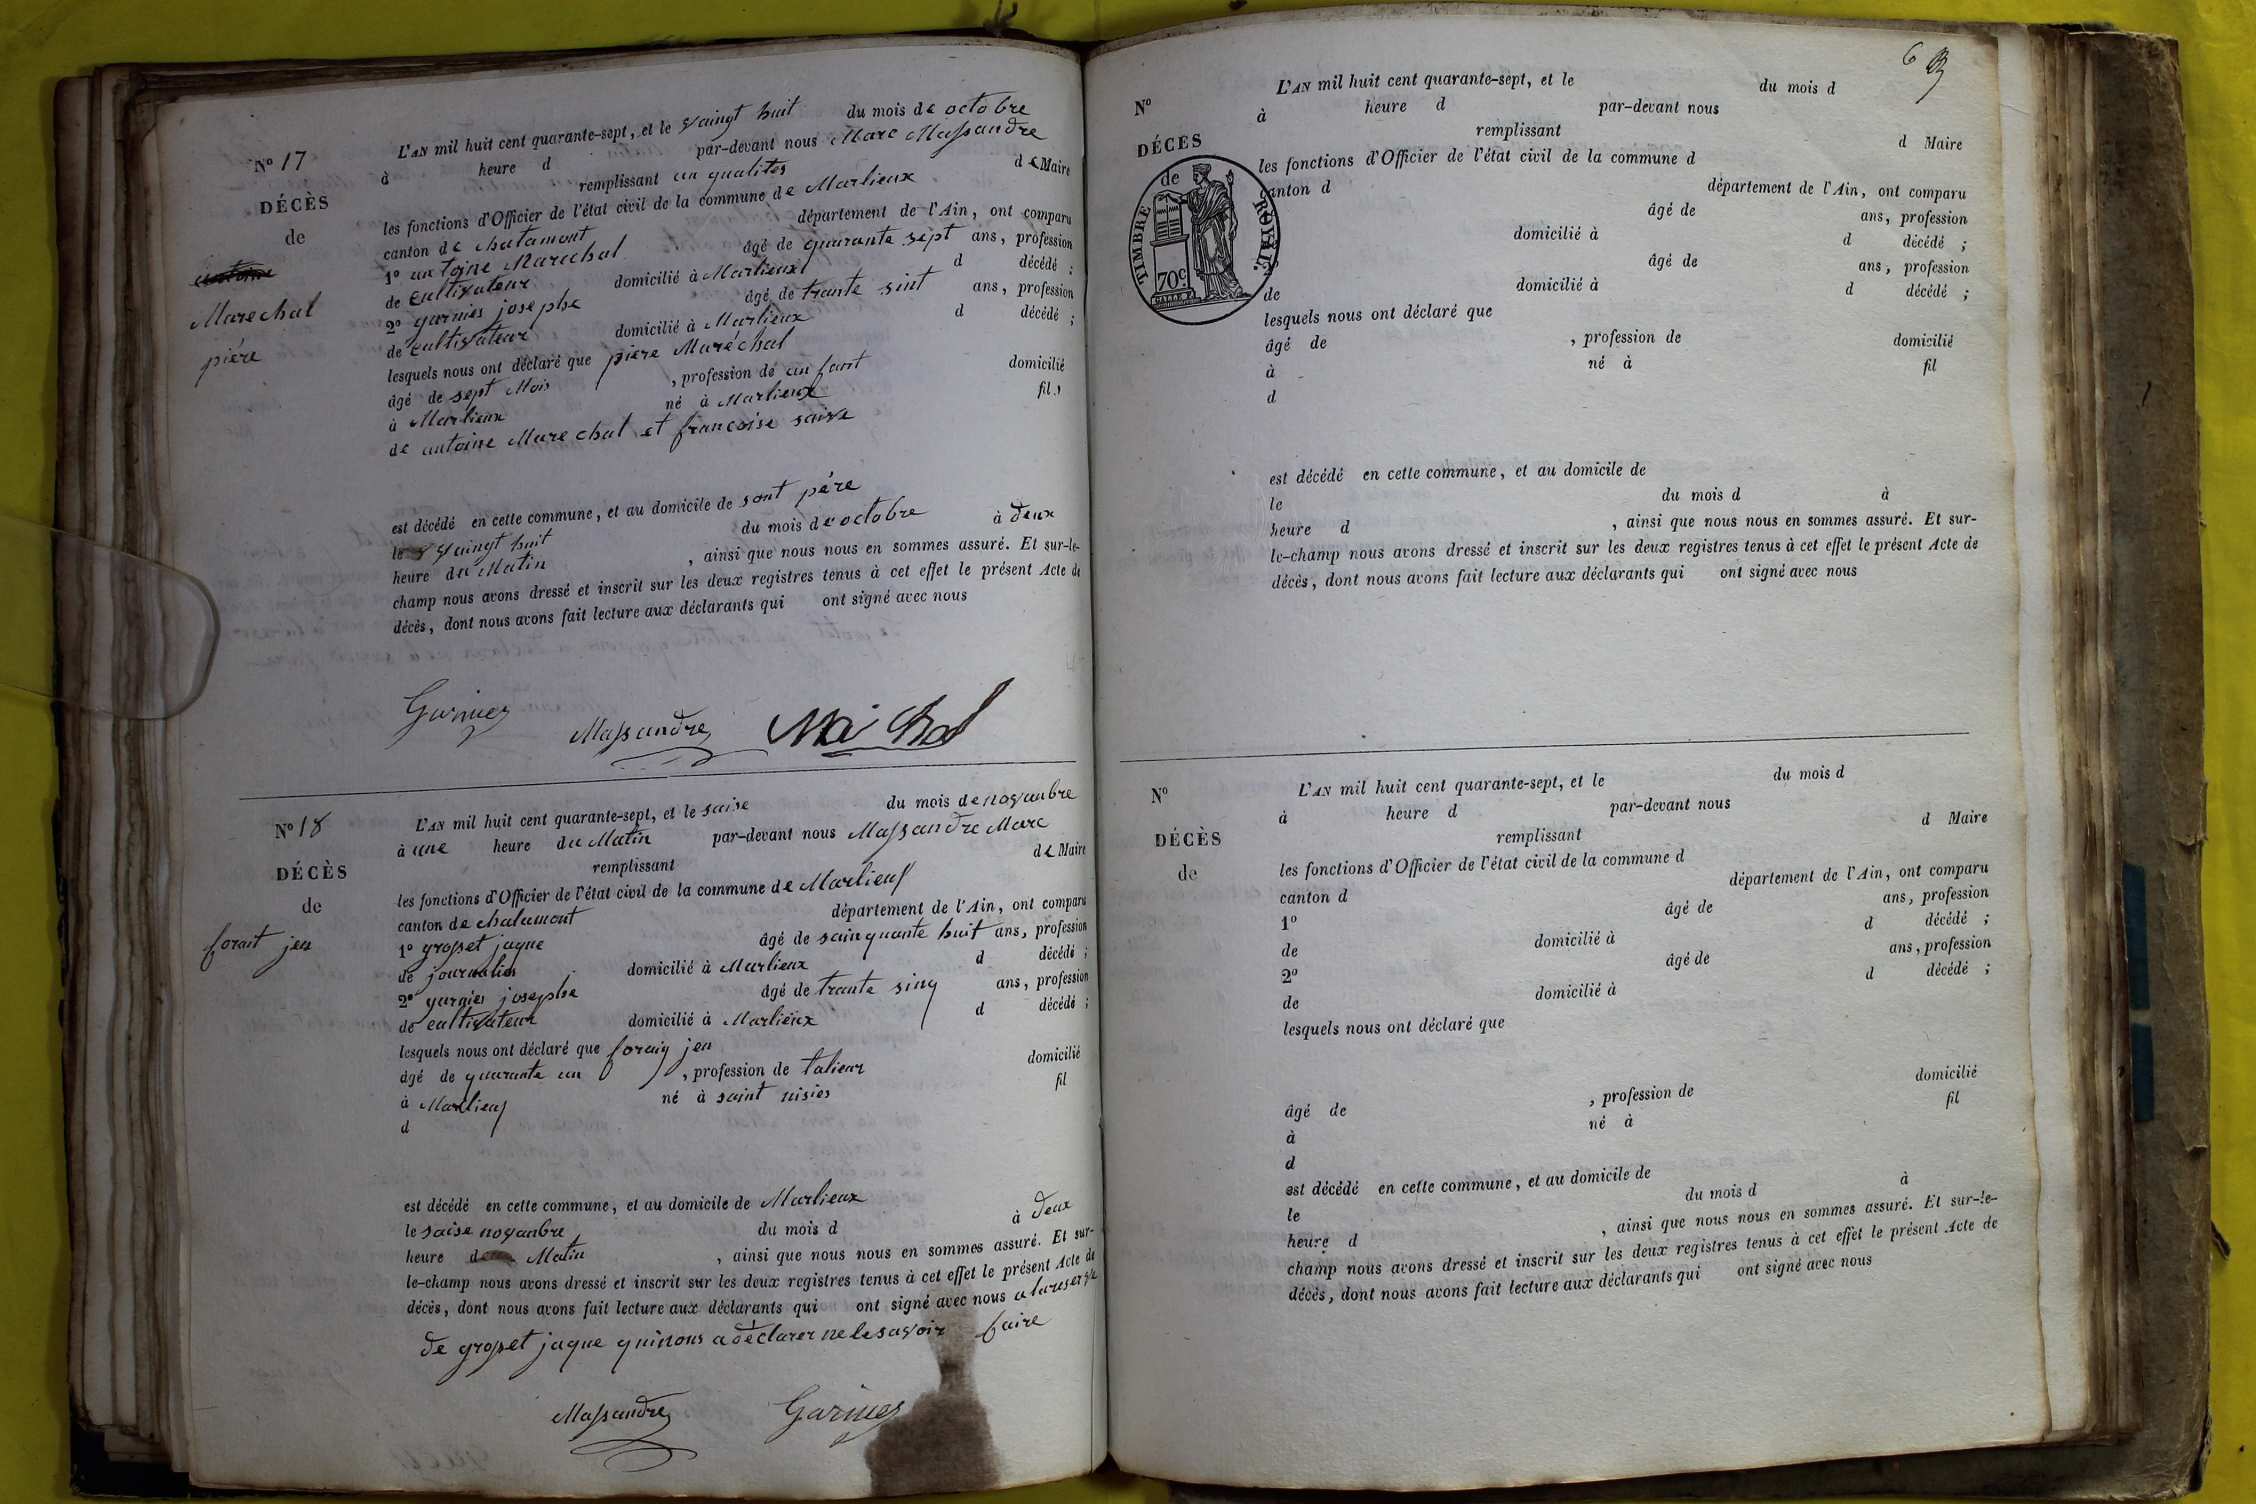 N° 17
DÉCÈS
de
Marechal
piére
L'AN mil huit cent quarante-sept, et le vaingt huit du mois de octobre
à heure d par-devant nous Marc Massandre
remplissant an qualites de Maire
les fonctions d'Officier de l'état civil de la commune de Marlieux
canton de chatamont département de l'Ain, ont comparu
1° antoine Marechal âgé de quarante sept ans, profession
de cultivateur domicilié à Marlieux d décédé ;
2° garnier josephe âgé de trante sint ans, profession
de cultivateur domicilié à Marlieux d décédé ;
lesquels nous ont déclaré que piere Maréchal
âgé de sept Mois , profession de anfant domicilié
à Marlieux né à Marlieux fils
de antoine Marechal et francoise saive
est décédé en cette commune, et au domicile de sont pére
le vaingt huit du mois de octobre à deux
heure du Matin , ainsi que nous nous en sommes assuré. Et sur-le-
champ nous avons dressé et inscrit sur les deux registres tenus à cet effet le présent Acte de
décès, dont nous avons fait lecture aux déclarants qui ont signé avec nous
Garnier Massandre
N° 18
DÉCÈS
de
forait jen
L'AN mil huit cent quarante-sept, et le saise du mois de novanbre
à une heure du Matin par-devant nous Massandre Marc
remplissant de Maire
les fonctions d'Officier de l'état civil de la commune de Marlieux
canton de chalamont département de l'Ain, ont comparu
1° grosset jaque âgé de sainquante huit ans, profession
de journalier domicilié à Marlieux d décédé ;
2° garnier josephe âgé de trante sinq ans, profession
de cultivateur domicilié à Marlieux d décédé ;
lesquels nous ont déclaré que foraiy jen
âgé de quarante un , profession de talieur domicilié
à Marlieux né à saint nisies fil
d
est décédé en cette commune, et au domicile de Marlieux
le saise novanbre du mois d à deux
heure d Matin , ainsi que nous nous en sommes assuré. Et sur-
le-champ nous avons dressé et inscrit sur les deux registres tenus à cet effet le présent Acte de
décès, dont nous avons fait lecture aux déclarants qui ont signé avec nous a lareserve
de grosset jaque quinous a déclarer ne le savoir faire
Massandre Garnier
6
N°
DÉCÈS
de
TIMBRE ROYAL.
70c
L'AN mil huit cent quarante-sept, et le du mois d
à heure d par-devant nous
remplissant d Maire
les fonctions d'Officier de l'état civil de la commune d
canton d département de l'Ain, ont comparu
âgé de ans, profession
domicilié à d décédé ;
âgé de ans, profession
de domicilié à d décédé ;
lesquels nous ont déclaré que
âgé de , profession de domicilié
à né à fil
d
est décédé en cette commune, et au domicile de
le du mois d à
heure d , ainsi que nous nous en sommes assuré. Et sur-
le-champ nous avons dressé et inscrit sur les deux registres tenus à cet effet le présent Acte de
décès, dont nous avons fait lecture aux déclarants qui ont signé avec nous
N°
DÉCÈS
de
L'AN mil huit cent quarante-sept, et le du mois d
à heure d par-devant nous
remplissant d Maire
les fonctions d'Officier de l'état civil de la commune d
canton d département de l'Ain, ont comparu
1° âgé de ans, profession
de domicilié à d décédé ;
2° âgé de ans, profession
de domicilié à d décédé ;
lesquels nous ont déclaré que
âgé de , profession de domicilié
à né à fil
d
est décédé en cette commune, et au domicile de
le du mois d à
heure d , ainsi que nous nous en sommes assuré. Et sur-le-
champ nous avons dressé et inscrit sur les deux registres tenus à cet effet le présent Acte de
décès, dont nous avons fait lecture aux déclarants qui ont signé avec nous